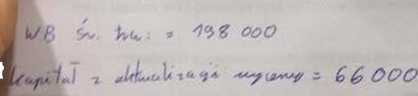 WB śr. trw. = 198 000
kapitał z aktualizacji wyceny = 66 000